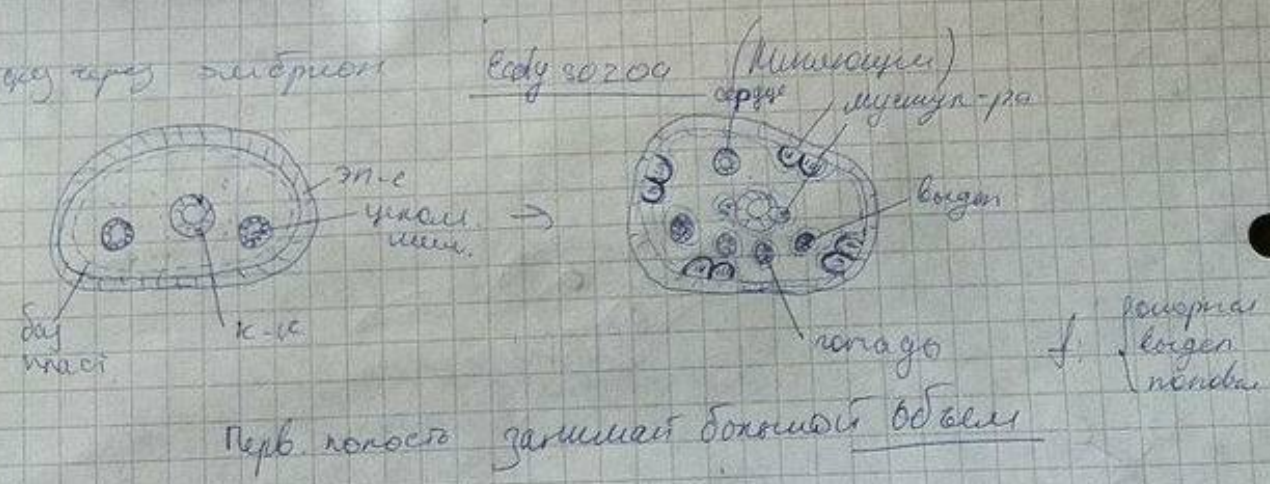 через эмбрион Ecdysozoa (Линяющие)
сердце
мускул-ра
эп-е
целом.
выдел
баз
пласт.
к-к
гонады
f:
опорная
выдел
половая
Перв. полость занимает большой объем